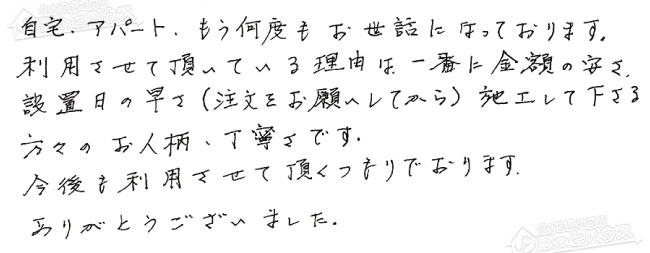 自宅、アパート、もう何度もお世話になっております。
利用させて頂いている理由は、一番に金額の安さ、
設置日の早さ(注文をお願いしてから)施工して下さる
方々のお人柄、丁寧さです。
今後も利用させて頂くつもりでおります。
ありがとうございました。